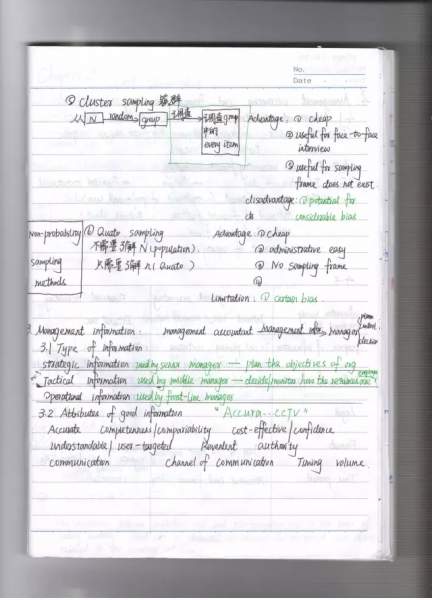 No.
Date
⑤ cluster sampling
从 N random group 调查 调查group
中的
every item
Advantage: ① cheap
② useful for face-to-face
interview
③ useful for sampling
frame does not exist.
disadvantage: ① potential for
considerable bias
Non-probability
sampling
methods
① Quato sampling
不需要了解 N (population).
只需要了解 n (Quato).
Advantage ① cheap
② administrative easy
③ No sampling frame
④
Limitation: ① certain bias.
3. Management information: management accountant management infor manager
decision
3.1 Type of information.
strategic information used by senior manager — plan the objectives of org
Tactical information used by middle manager — decide/monitor how the resources are
employed
Operational information used by front-line manager
3.2 Attributes of good information "Accura..ccTV"
Accurate completeness/comparability cost-effective/confidence
undastandable/user-targeted Revelent authority
communication Channel of communication Timing volume.